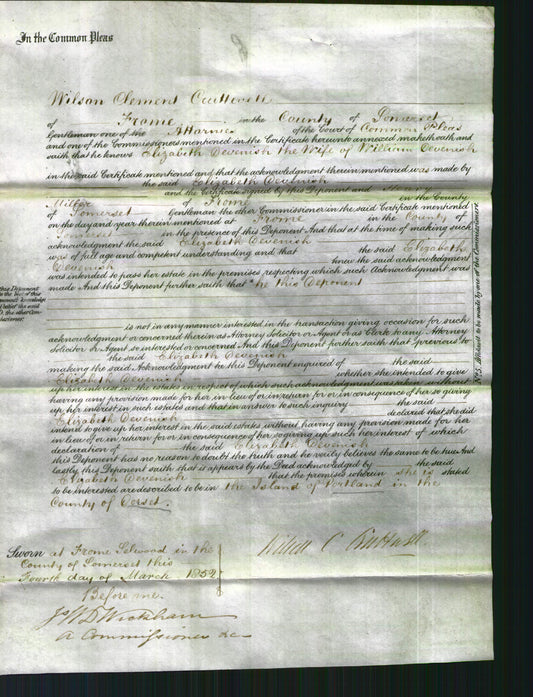 In the Common Pleas
Wilson Clement Cruttwell
of Frome in the County of Somerset
Gentleman one of the Attornies of the Court of Common Pleas
and one of the Commissioners mentioned in the Certificate hereunto annexed maketh oath and
saith that he knows Elizabeth Devenish the Wife of William Devenish
in the said Certificate mentioned and that the acknowledgment therein mentioned was made by
the said Elizabeth Devenish
and the Certificate signed by this Deponent and
Miller of Frome in the County
of Somerset Gentleman the other Commissioner in the said Certificate mentioned
on the day and year therein mentioned at Frome in the County of
Somerset in the presence of this Deponent And that at the time of making such
acknowledgment the said Elizabeth Devenish
was of full age and competent understanding and that the said Elizabeth
Devenish knew the said acknowledgment
was intended to pass her estate in the premises respecting which such Acknowledgment was
made And this Deponent further saith that he this Deponent
is not in any manner interested in the transaction giving occasion for such
acknowledgment or concerned therein as Attorney Solicitor or Agent or as Clerk to any Attorney
Solicitor or Agent so interested or concerned And this Deponent further saith that previous to
the said Elizabeth Devenish
making the said Acknowledgment he this Deponent enquired of the said
Elizabeth Devenish whether she intended to give
up her interest in the estates in respect of which such acknowledgment was taken without
having any provision made for her in lieu of or in return for or in consequence of her so giving
up her interest in such estates and that in answer to such inquiry the said
Elizabeth Devenish declared that she did
intend to give up her interest in the said estates without having any provision made for her
in lieu of or in return for or in consequence of her so giving up such her interest of which
declaration of the said Elizabeth Devenish
this Deponent has no reason to doubt the truth and he verily believes the same to be true And
lastly this Deponent saith that it appears by the Deed acknowledged by the said
Elizabeth Devenish that the premises wherein she is stated
to be interested are described to be in the Island of Portland in the
County of Dorset.
Sworn at Frome Selwood in the
County of Somerset this
Fourth day of March 1852
Before me
Wilson C Cruttwell
Wickham
A Commissioner &c